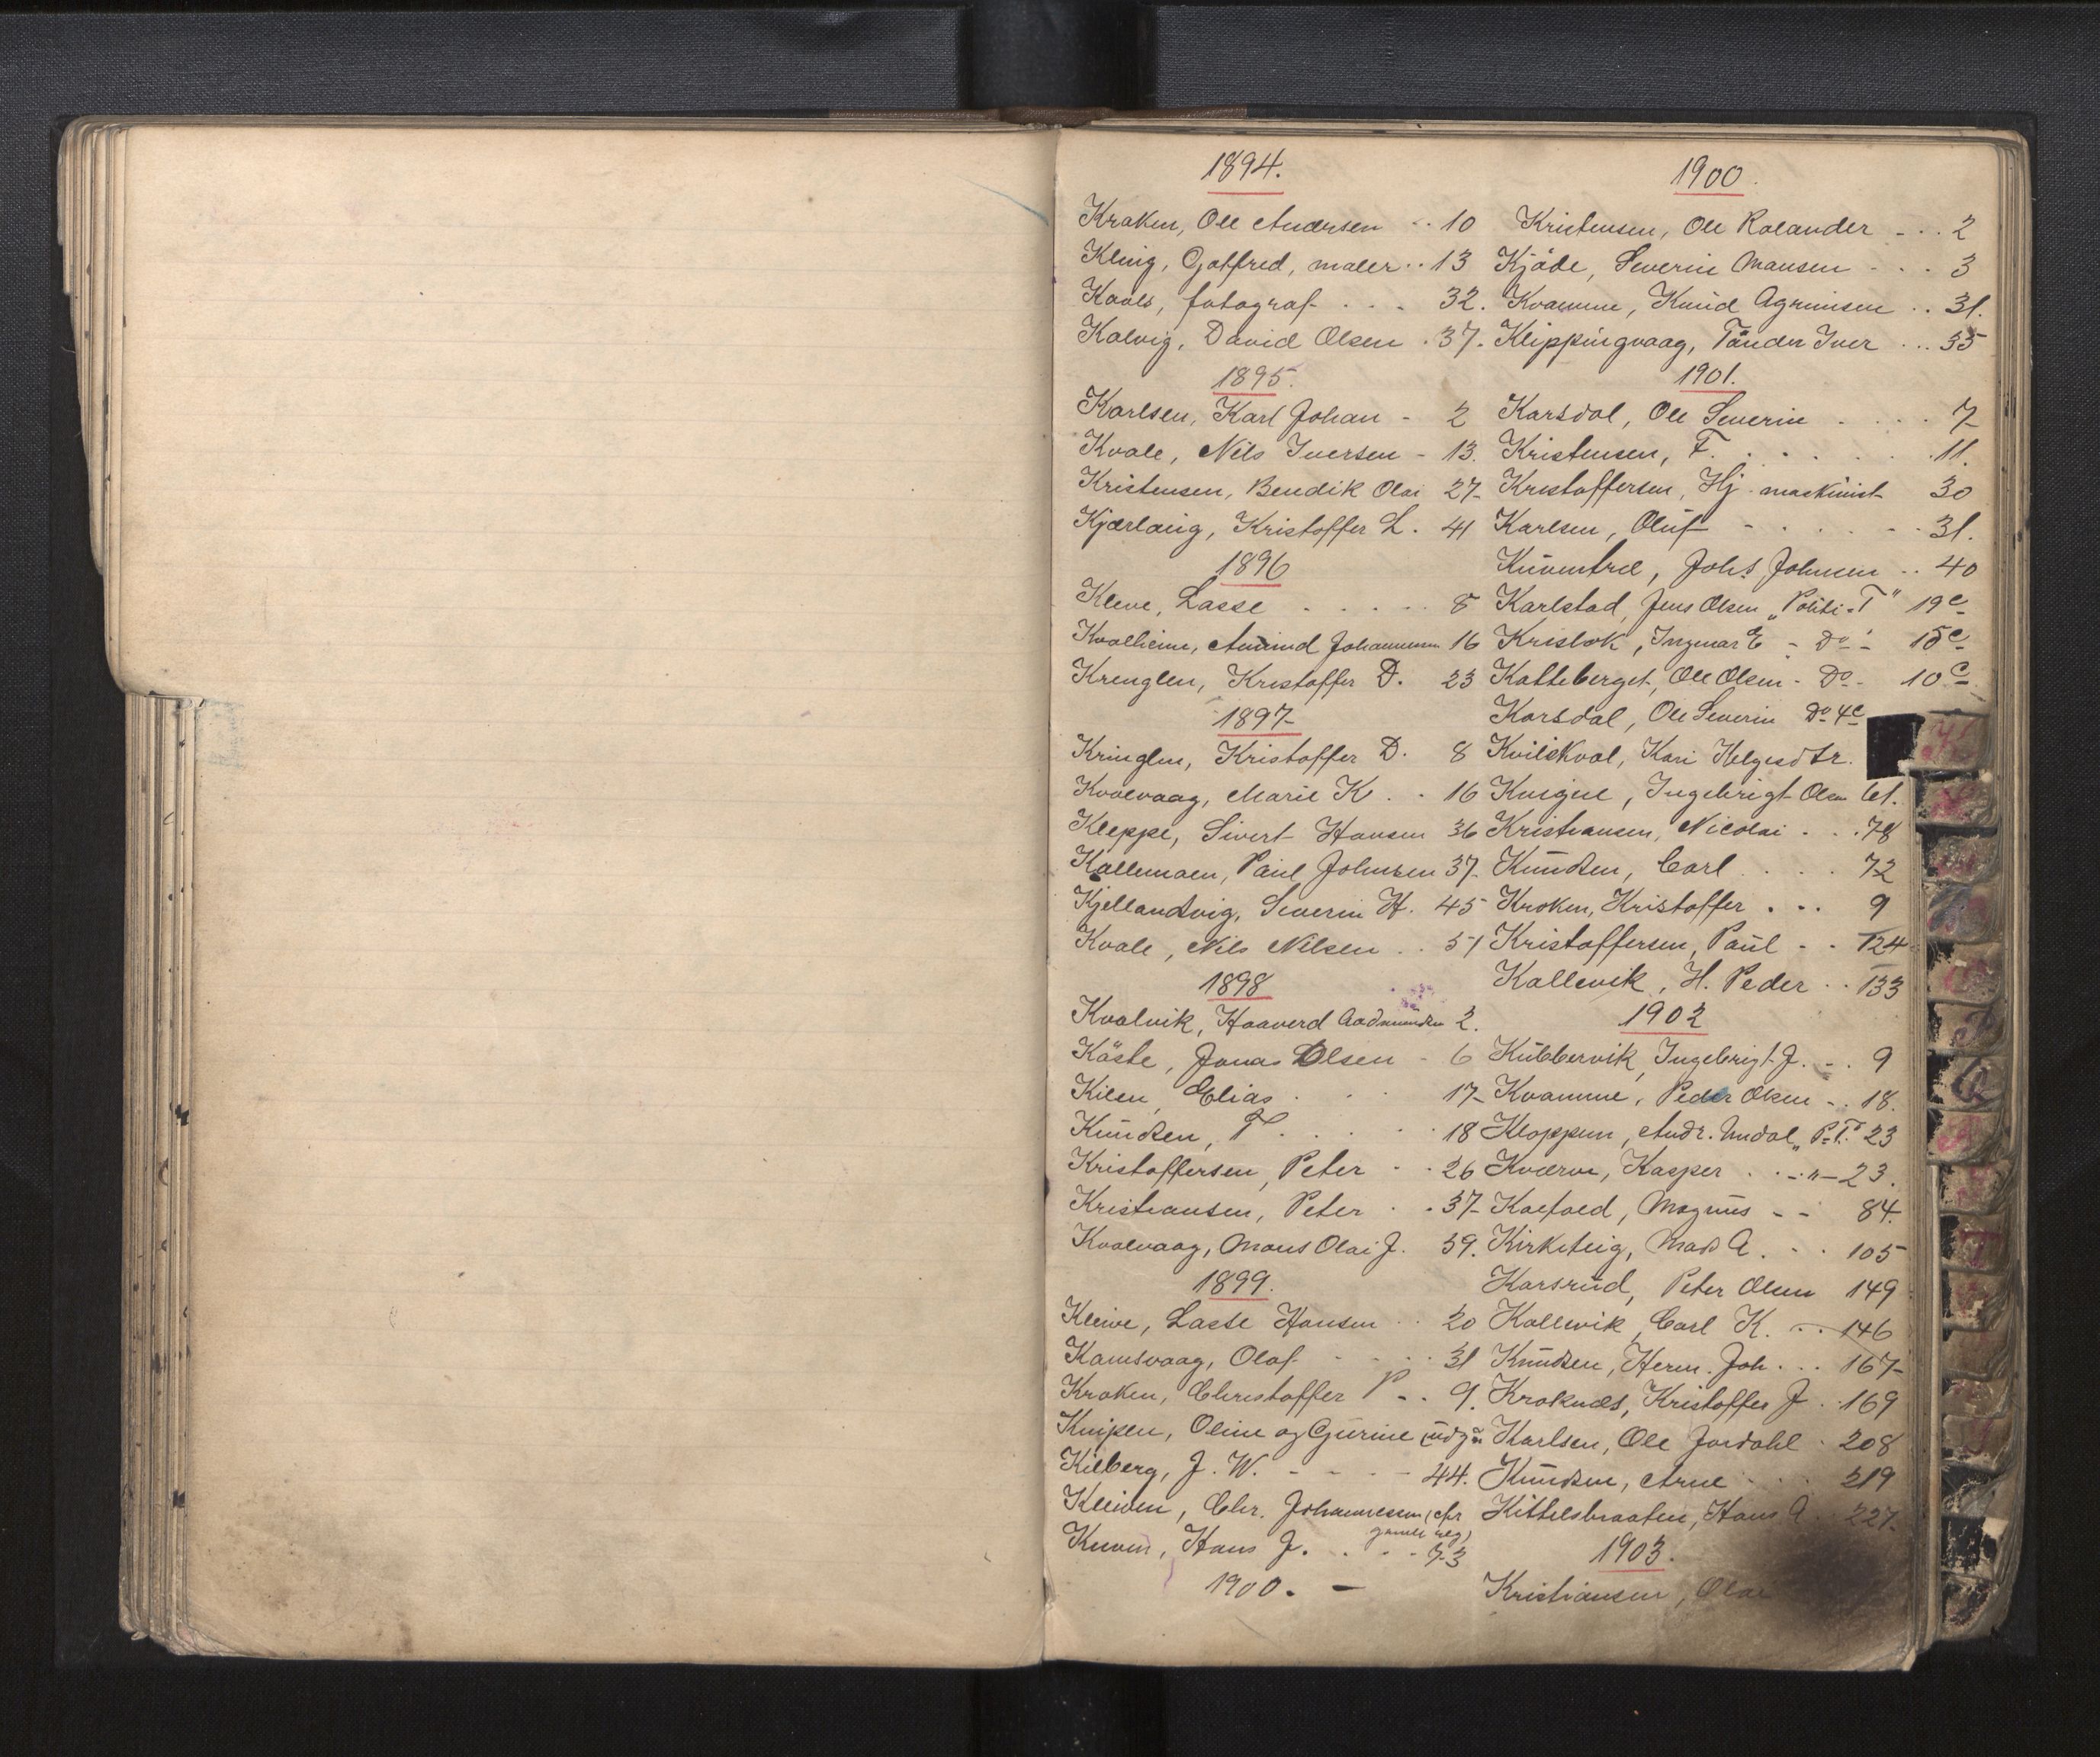 1894.
Kraken, Ole Andersen .. 10
Kling, Gotfred, maler .. 13
Kools, fotograf . . . 32.
Kalvig, David Olsen . 37.
1895.
Karlsen, Karl Johan - 2
Kvale, Nils Iversen - 13.
Kristensen, Bendik Olai 27
Kjærlaug, Kristoffer L. 41
1896
Kleve, Lasse . . . . . 8
Kvalheim, Amund Johannesen 16
Krenglen, Kristoffer D. 23
1897
Kringlen, Kristoffer D. 8
Kvalvaag, Marie K. . 16
Kleppe, Sivert Hansen 36
Kallemoen, Paul Johnsen 37
Kjellandvig, Severin H. 45
Kvale, Nils Nilsen .. 51
1898
Kvalvik, Haaverd Aadmundsen 2.
Käste, Jonas Olsen - 6
Kilen, Elias . . . 17
Knudsen, F. . . . . . 18
Kristoffersen, Peter . . 26
Kristiansen, Peter . . 37
Kvalvaag, Mons Olai J. 39.
1899.
Kleive, Lasse Hansen .. 20
Kamsvaag, Olaf - - . . 31
Kroken, Christoffer P - . 9.
Knipen, Oline og Gurine (udg.
Kilberg, J. W. - - - - 44.
Kleiven, Chr. Johannesen (cfr
gamle reg)
Kuven, Hans J. . . - - 73
1900. -
1900.
Kristensen, Ole Rolander - . . 2
Kjöde, Severin Mansen - . . 3
Kvamme, Knud Agmunsen . . 31.
Klippingvaag, Tånder Iver ... 35
1901.
Karsdal, Ole Severin . . . . 7
Kristensen, F. . . . . . . 11.
Kristoffersen, Hj. maskinist 30
Karlsen, Oluf - . . . - . 31.
Kuventræ, Johs. Johnsen .. 40
Karlstad, Jens Olsen "Politi-T" 19c
Krisbok, Ingmar E - Do - 15c
Katteberget, Ole Olsen - Do - 10c
Korsdal, Ole Severin Do 4c
Kvilekval, Kari Helgesdtr.
Kvigne, Ingebrigt Olsen 61.
Kristiansen, Nicolai . . . 78
Knudsen, Carl . . . . 72
Kroken, Kristoffer . . . 9
Kristoffersen, Paul - - 124
Kallevik, H. Peder . . 133
1902
Kubbervik, Ingebrigt J. - . 9
Kvamme, Peder Olsen - . 18.
Kloppen, Andr. Undal "P.T." 23
Kværve, Kasper . . - " - 23.
Koefoed, Magnus - - 84.
Kirketeig, Mads A. . . 105
Karsrud, Peter Olsen 149
Kallevik, Carl K. . . 146
Knudsen, Herm. Joh. . . 167
Kroknæs, Kristoffer J . 169
Karlsen, Ole Jordahl . 208
Knudsen, Arne - . . 219
Kittelsbraaten, Hans A. 227.
1903.
Kristiansen, Olai